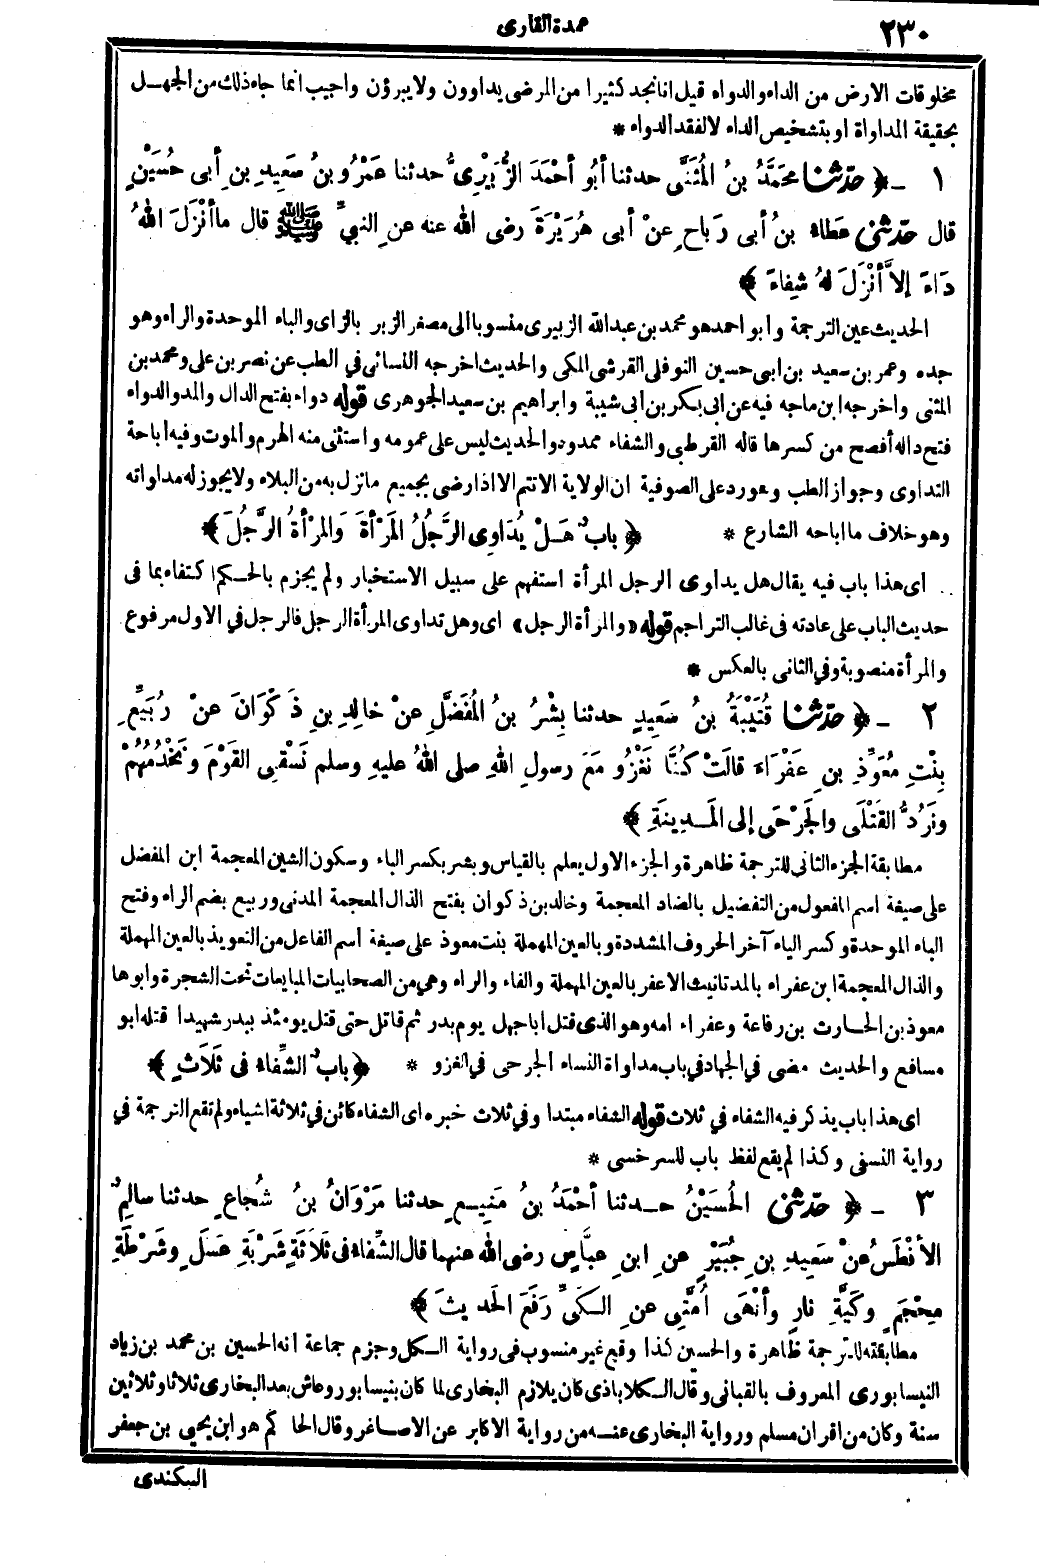 ٢٣٠
عمدة القارى
مخلوقات الارض من الداء والدواء قيل انانجد كثيرا من المرضى يداوون ولايبرؤن واجيب انما جاء ذلك من الجهل
بحقيقة المداواة او بتشخيص الداء لالفقد الدواء *
١ ـ ﴿ حَدَّثَنَا مُحَمَّدُ بنُ المُثَنَّى حدثنا أبُو أحْمَدَ الزُّبَيْرِىُّ حدثنا عَمْرُو بنُ سَعِيدِ بنِ أبى حُسَيْنٍ
قال حَدَّثَنى عَطَاءُ بنُ أبى رَبَاحٍ عنْ أبى هُرَيْرَةَ رضى الله عنه عنِ النبيِّ ﷺ قال ماأنْزَلَ اللهُ
دَاءً إلاَّ أنْزَلَ لهُ شِفَاءً ﴾
الحديث عين الترجمة وابو احمد هو محمد بن عبدالله الزبيرى منسوبا الى مصغر الزبر بالزاى والباء الموحدة والراء وهو
جده وعمر بن سعيد بن ابى حسين النوفلى القرشى المكى والحديث اخرجه النسائى في الطب عن نصر بن على ومحمد بن
المثنى واخرجه ابن ماجه فيه عن ابى بكر بن ابى شيبة وابراهيم بن سعيد الجوهرى قوله دواء بفتح الدال والمد والدواء
فتح داله أفصح من كسرها قاله القرطبى والشفاء ممدود والحديث ليس على عمومه واستثنى منه الهرم والموت وفيه اباحة
التداوى وجواز الطب وهو رد على الصوفية ان الولاية لاتتم الا اذا رضى بجميع مانزل به من البلاء ولايجوز له مداواته
وهو خلاف ما اباحه الشارع * ﴿ بابٌ هَلْ يُدَاوِى الرَّجُلُ المَرْأةَ والمَرْأةُ الرَّجُلَ ﴾
اى هذا باب فيه يقال هل يداوى الرجل المرأة استفهم على سبيل الاستخبار ولم يجزم بالحكم اكتفاء بما فى
حديث الباب على عادته فى غالب التراجم قوله «والمرأة الرجل» اى وهل تداوى المرأة الرجل فالرجل في الاول مرفوع
والمرأة منصوبة وفي الثانى بالعكس *
٢ ـ ﴿ حَدَّثَنَا قُتَيْبَةُ بنُ سَعِيدٍ حدثنا بِشْرُ بنُ المُفَضَّلِ عنْ خالِدِ بنِ ذَكْوَانَ عنْ رُبَيِّعَ
بِنْتِ مُعَوِّذِ بنِ عَفْرَاءَ قالَتْ كُنَّا نَغْزُو مَعَ رسولِ اللهِ صلى اللهُ عليهِ وسلم نَسْقِى القَوْمَ وَنَخْدُمُهُمْ
ونَرُدُّ القَتْلَى والجَرْحَى إلى المَدِينَةِ ﴾
مطابقة الجزء الثانى للترجمة ظاهرة والجزء الاول يعلم بالقياس وبشر بكسر الباء وسكون الشين المعجمة ابن المفضل
على صيغة اسم المفعول من التفضيل بالضاد المعجمة وخالد بن ذكوان بفتح الذال المعجمة المدنى وربيع بضم الراء وفتح
الباء الموحدة وكسر الياء آخر الحروف المشددة وبالعين المهملة بنت معوذ على صيغة اسم الفاعل من التعويذ بالعين المهملة
والذال المعجمة ابن عفراء بالمد تانيث الاعفر بالعين المهملة والفاء والراء وهي من الصحابيات المبايعات تحت الشجرة وابوها
معوذ بن الحارث بن رفاعة وعفراء امه وهو الذى قتل اباجهل يوم بدر ثم قاتل حتى قتل يومئذ ببدر شهيدا قتله ابو
مسافع والحديث مضى في الجهاد في باب مداواة النساء الجرحى في الغزو * ﴿ بابٌ الشِّفاءُ فى ثَلَاثٍ ﴾
اى هذا باب يذكر فيه الشفاء في ثلاث قوله الشفاء مبتدا وفي ثلاث خبره اى الشفاء كائن في ثلاثة اشياء ولم تقع الترجمة في
رواية النسفى وكذا لم يقع لفظ باب للسرخسى *
٣ ـ ﴿ حَدَّثَنى الحُسَيْنُ حدثنا أحْمَدُ بنُ مَنِيعٍ حدثنا مَرْوَانُ بنُ شُجَاعٍ حدثنا سالِمٌ
الأفْطَسُ عنْ سَعِيدِ بنِ جُبَيْرٍ عنِ ابنِ عبَّاسٍ رضى الله عنهما قال الشِّفَاءُ فى ثَلَاثَةٍ شَرْبَةِ عَسَلٍ وشَرْطَةِ
مِحْجَمٍ وكَيَّةِ نارٍ وأنْهَى أُمَّتِى عنِ الكَىِّ رَفَعَ الحَديثَ ﴾
مطابقته للترجمة ظاهرة والحسين كذا وقع غير منسوب فى رواية الكل وجزم جماعة انه الحسين بن محمد بن زياد
النيسابورى المعروف بالقبانى وقال الكلاباذى كان يلازم البخارى لما كان بنيسابور وعاش بعد البخارى ثلاثا وثلاثين
سنة وكان من اقران مسلم ورواية البخارى عنه من رواية الاكابر عن الاصاغر وقال الحاكم هو ابن يحيى بن جعفر
البيكندى